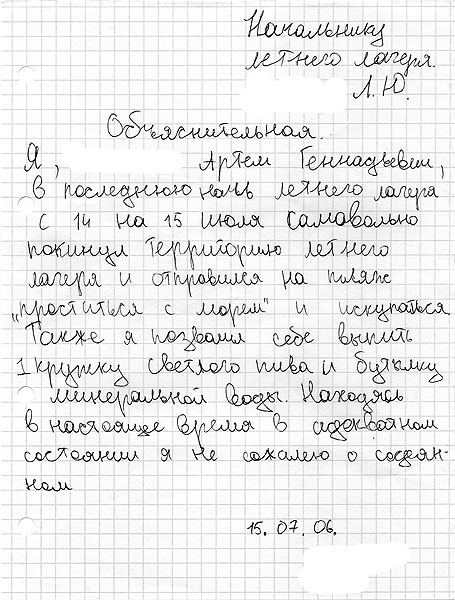 Начальнику
летнего лагеря.
Л.Ю.
Объяснительная.
Я, Артем Геннадьевич,
в последнюю ночь летнего лагеря
с 14 на 15 июля самавольно
покинул территорию летнего
лагеря и отправился на пляж
„проститься с морем" и искупаться
Также я позволил себе выпить
1 кружку светлого пива и бутылку
минеральной воды. Находясь
в настояще время в адекватном
состоянии я не сожалею о содеян-
ном
15.07.06.